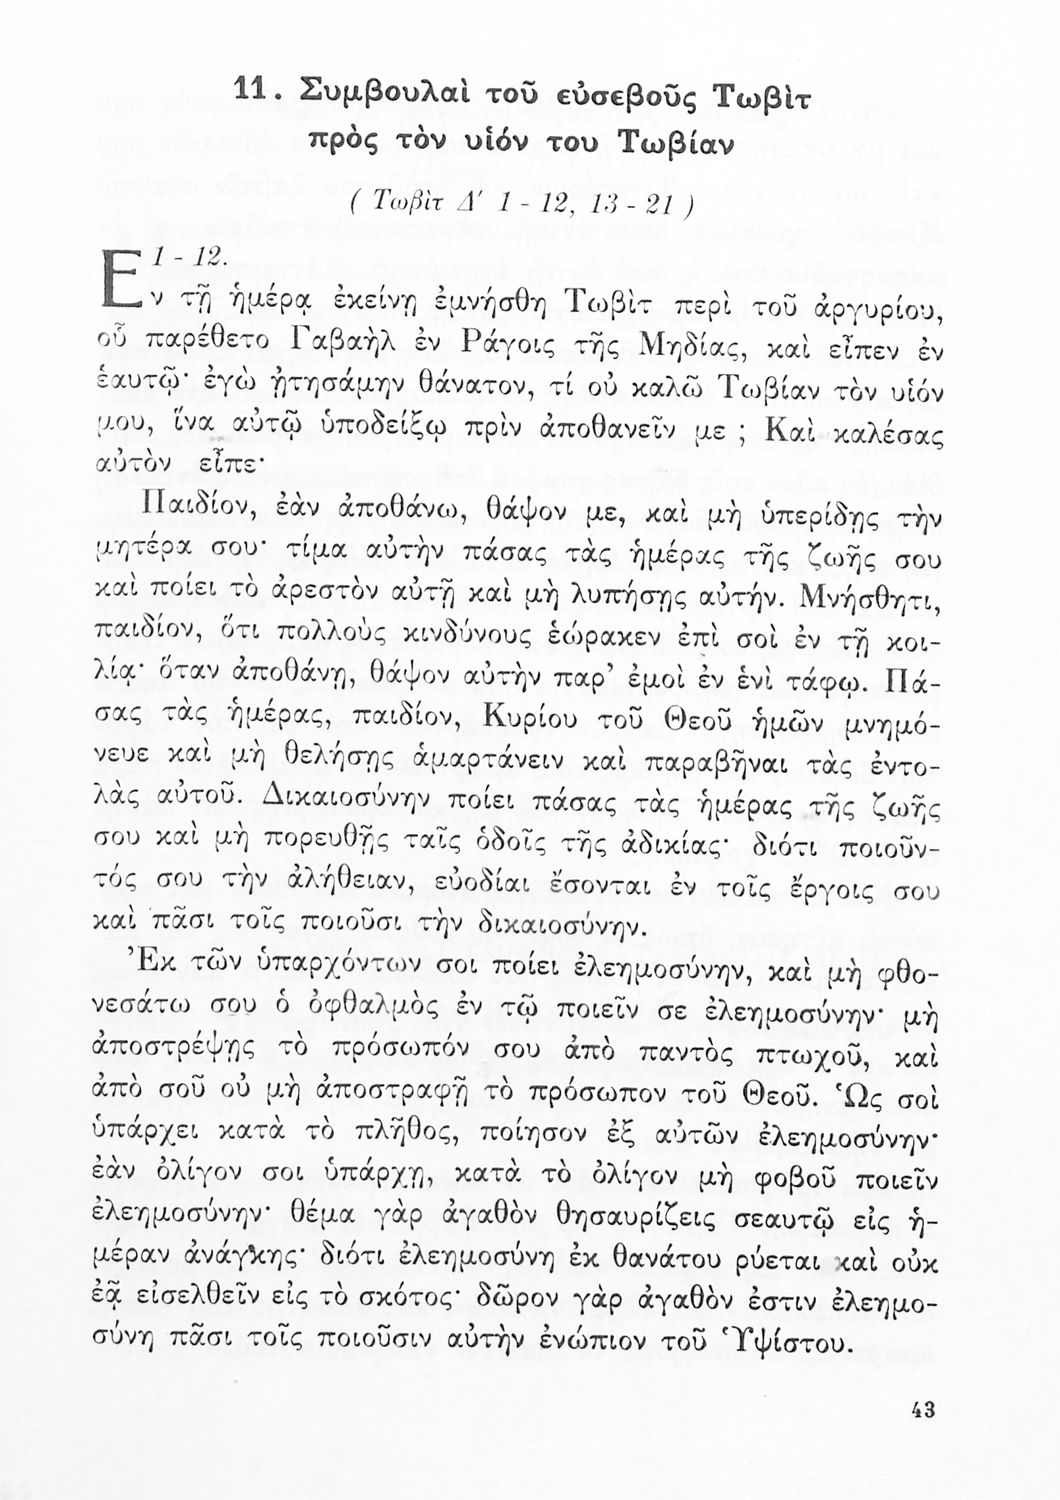 11. Συμβουλαὶ τοῦ εὐσεβοῦς Τωβὶτ
πρὸς τὸν υἱόν του Τωβίαν
( Τωβὶτ Δ′ 1 - 12, 13 - 21 )
1 - 12.
Ἐν τῇ ἡμέρᾳ ἐκείνῃ ἐμνήσθη Τωβὶτ περὶ τοῦ ἀργυρίου,
οὗ παρέθετο Γαβαὴλ ἐν Ράγοις τῆς Μηδίας, καὶ εἶπεν ἐν
ἑαυτῷ· ἐγὼ ᾐτησάμην θάνατον, τί οὐ καλῶ Τωβίαν τὸν υἱόν
μου, ἵνα αὐτῷ ὑποδείξω πρὶν ἀποθανεῖν με ; Καὶ καλέσας
αὐτὸν εἶπε·
Παιδίον, ἐὰν ἀποθάνω, θάψον με, καὶ μὴ ὑπερίδῃς τὴν
μητέρα σου· τίμα αὐτὴν πάσας τὰς ἡμέρας τῆς ζωῆς σου
καὶ ποίει τὸ ἀρεστὸν αὐτῇ καὶ μὴ λυπήσῃς αὐτήν. Μνήσθητι,
παιδίον, ὅτι πολλοὺς κινδύνους ἑώρακεν ἐπὶ σοὶ ἐν τῇ κοι-
λίᾳ· ὅταν ἀποθάνῃ, θάψον αὐτὴν παρ’ ἐμοὶ ἐν ἑνὶ τάφῳ. Πά-
σας τὰς ἡμέρας, παιδίον, Κυρίου τοῦ Θεοῦ ἡμῶν μνημό-
νευε καὶ μὴ θελήσῃς ἁμαρτάνειν καὶ παραβῆναι τὰς ἐντο-
λὰς αὐτοῦ. Δικαιοσύνην ποίει πάσας τὰς ἡμέρας τῆς ζωῆς
σου καὶ μὴ πορευθῇς ταῖς ὁδοῖς τῆς ἀδικίας· διότι ποιοῦν-
τός σου τὴν ἀλήθειαν, εὐοδίαι ἔσονται ἐν τοῖς ἔργοις σου
καὶ πᾶσι τοῖς ποιοῦσι τὴν δικαιοσύνην.
Ἐκ τῶν ὑπαρχόντων σοι ποίει ἐλεημοσύνην, καὶ μὴ φθο-
νεσάτω σου ὁ ὀφθαλμὸς ἐν τῷ ποιεῖν σε ἐλεημοσύνην· μὴ
ἀποστρέψῃς τὸ πρόσωπόν σου ἀπὸ παντὸς πτωχοῦ, καὶ
ἀπὸ σοῦ οὐ μὴ ἀποστραφῇ τὸ πρόσωπον τοῦ Θεοῦ. Ὡς σοὶ
ὑπάρχει κατὰ τὸ πλῆθος, ποίησον ἐξ αὐτῶν ἐλεημοσύνην·
ἐὰν ὀλίγον σοι ὑπάρχῃ, κατὰ τὸ ὀλίγον μὴ φοβοῦ ποιεῖν
ἐλεημοσύνην· θέμα γὰρ ἀγαθὸν θησαυρίζεις σεαυτῷ εἰς ἡ-
μέραν ἀνάγκης· διότι ἐλεημοσύνη ἐκ θανάτου ρύεται καὶ οὐκ
ἐᾷ εἰσελθεῖν εἰς τὸ σκότος· δῶρον γὰρ ἀγαθόν ἐστιν ἐλεημο-
σύνη πᾶσι τοῖς ποιοῦσιν αὐτὴν ἐνώπιον τοῦ Ὑψίστου.
43